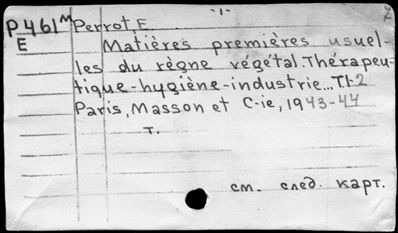 -1-
P461ᴹ Perrot E
E Matières premières usuel-
les du règne végétal. Thérapeu-
tique-hygiène-industrie... T1-2
Paris, Masson et C-ie, 1943-44
т.
см. след. карт.